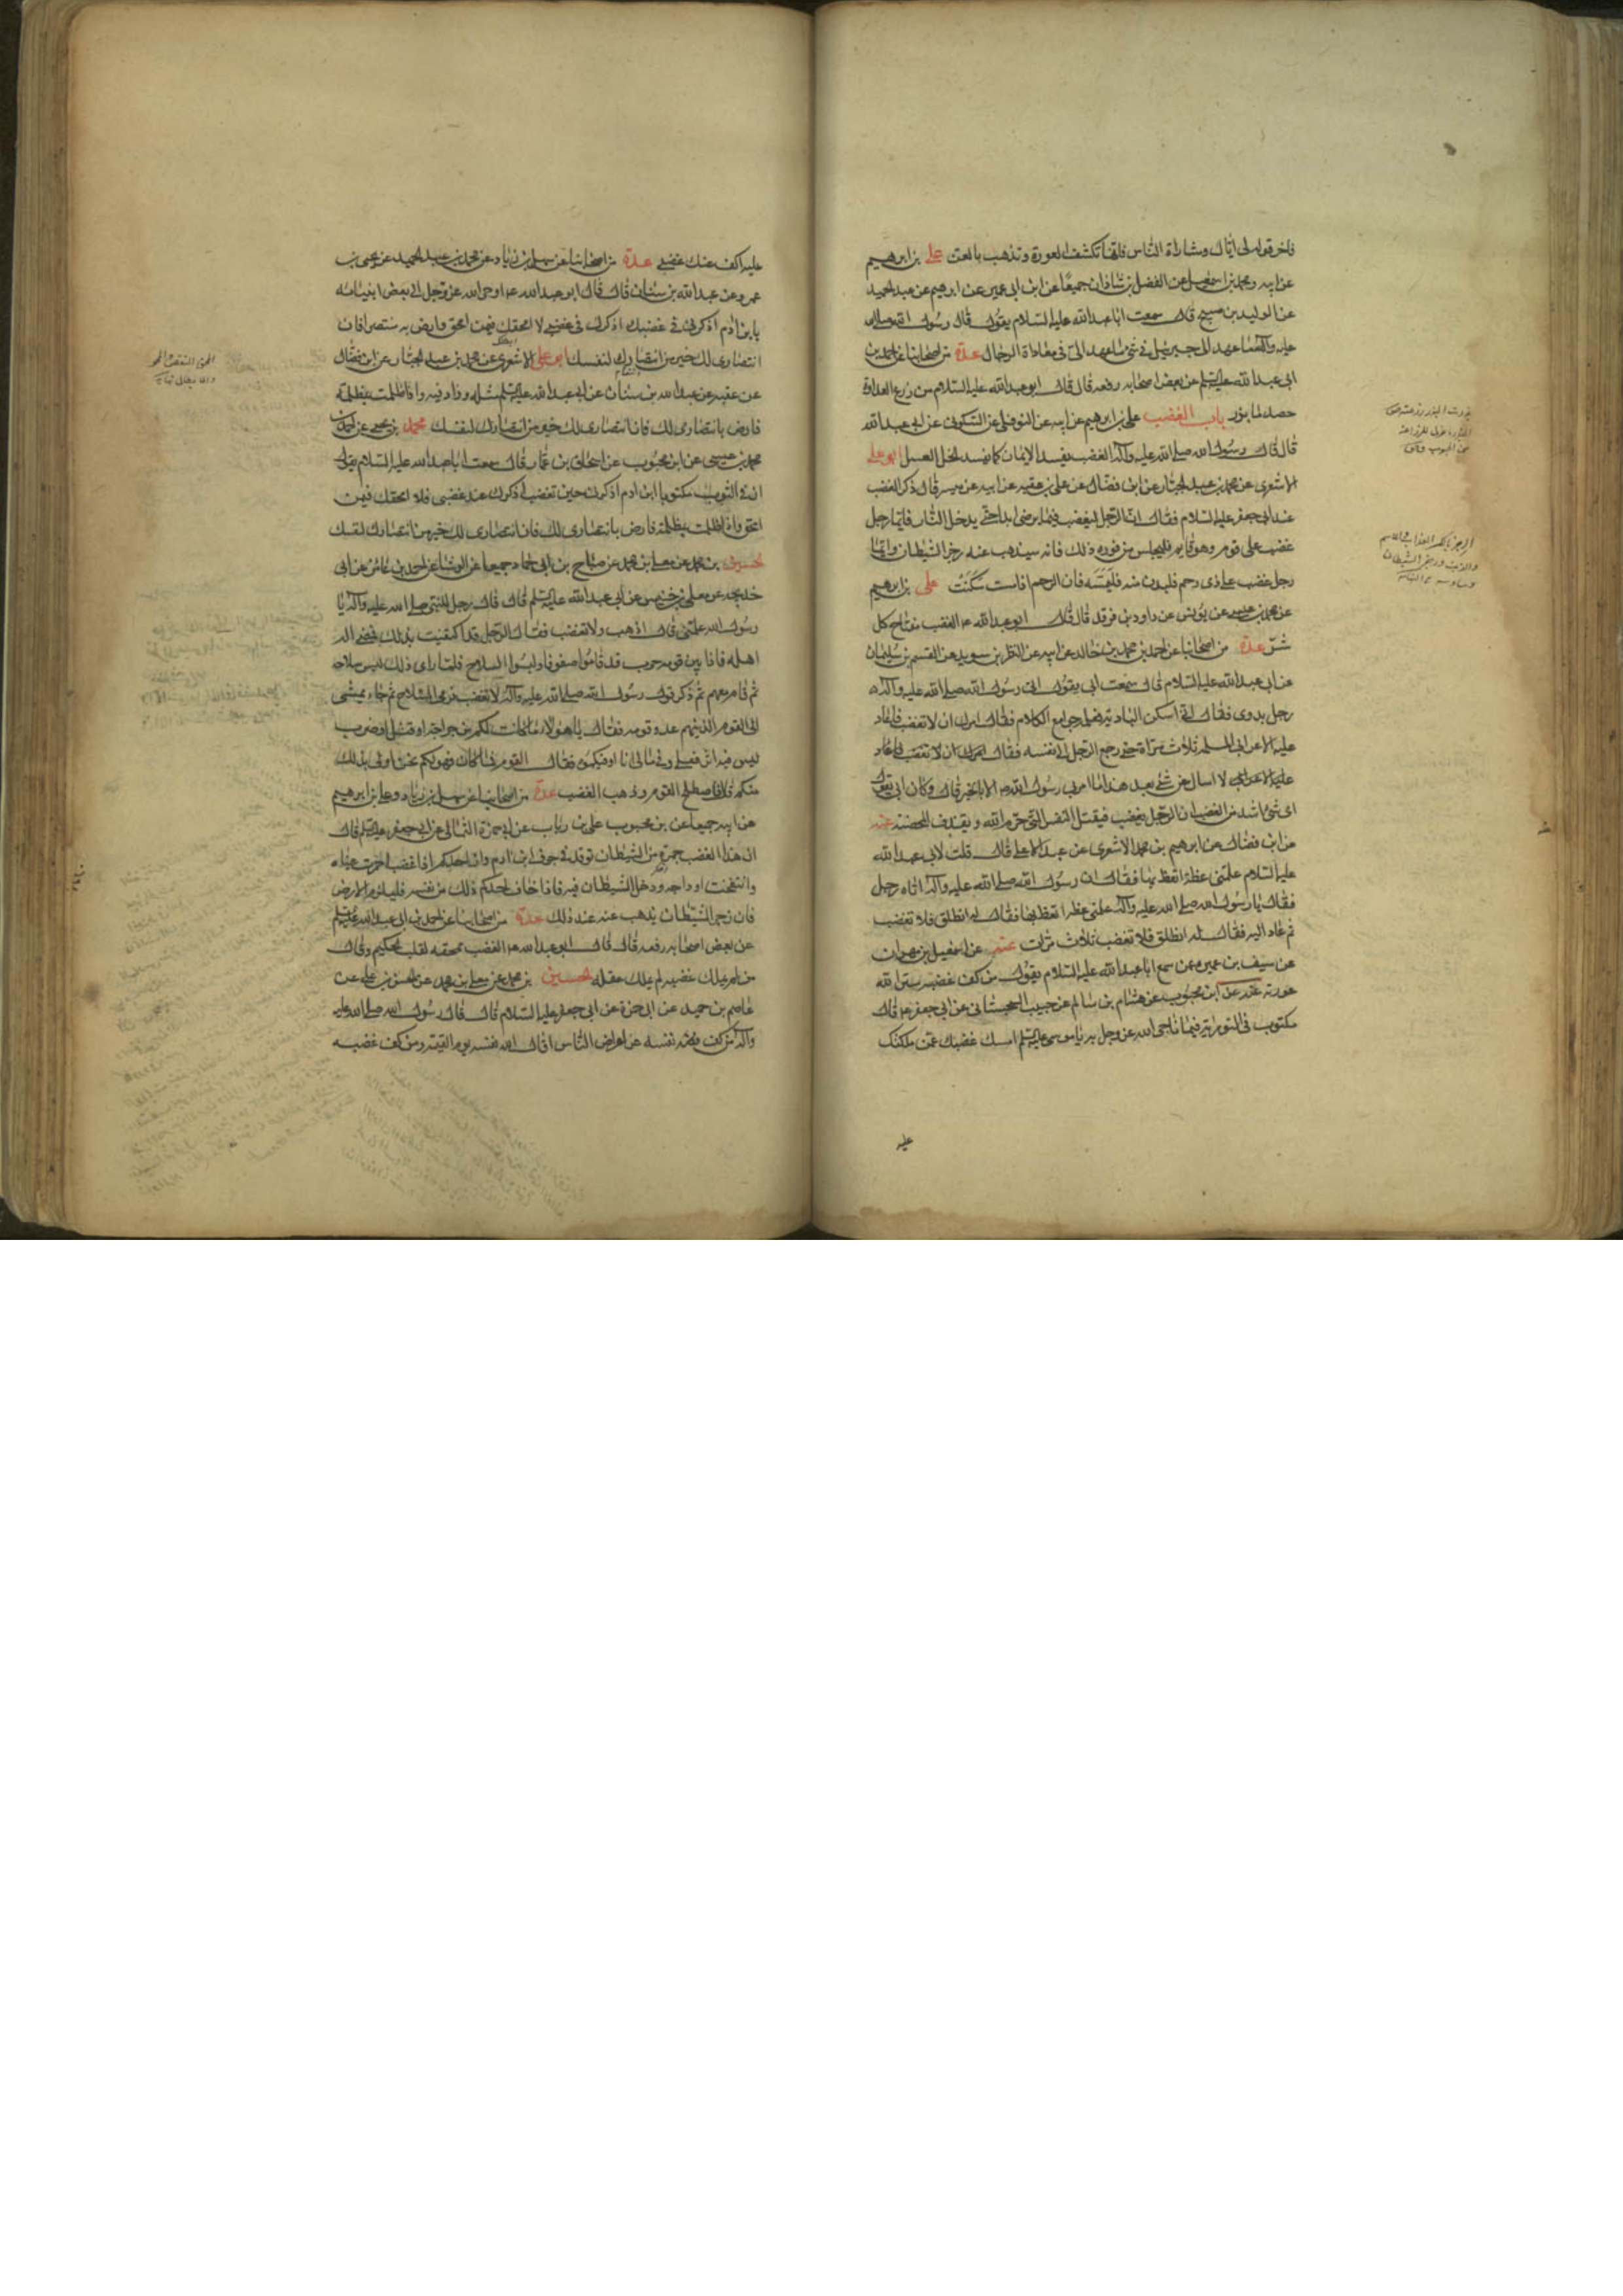 فاخر قوله لى اياك ومشاراة الناس فانها تكشف العورة وتذهب بالعز على بن ابرهيم
عن ابيه ومحمد بن اسمعيل عن الفضل بن شاذان جميعا عن ابن ابى عمير عن ابرهيم بن عبد الحميد
عن الوليد بن صبيح قال سمعت ابا عبد الله عليه السلام يقول قال رسول الله صلى الله
عليه وآله ما عهد الى جبرئيل فى شئ ما عهد الى فى معاداة الرجال عدة من اصحابنا عن احمد بن
ابى عبد الله عليه السلم عن بعض اصحابه رفعه قال قال ابو عبد الله عليه السلام من زرع العداوة
حصد ما بذر باب الغضب على بن ابرهيم عن ابيه عن النوفلى عن السكونى عن ابى عبد الله
قال قال رسول الله صلى الله عليه وآله الغضب يفسد الايمان كما يفسد الخل العسل ابو على
الاشعرى عن محمد بن عبد الجبار عن ابن فضال عن على بن عقبه عن ابيه عن ميسر قال ذكر الغضب
عند ابى جعفر عليه السلام فقال ان الرجل ليغضب فما يرضى ابدا حتى يدخل النار فايما رجل
غضب على قوم وهو قايم فليجلس من فوره ذلك فانه سيذهب عنه رجز الشيطان وايما
رجل غضب على ذى رحم فليدن منه فليمسه فان الرحم اذا مست سكنت على بن ابرهيم
عن محمد بن عيسى عن يونس عن داود بن فرقد قال قال ابو عبد الله ع الغضب مفتاح كل
شر عدة من اصحابنا عن احمد بن محمد بن خالد عن ابيه عن النظر بن سويد عن القسم بن سليمان
عن ابى عبد الله عليه السلام قال سمعت ابى يقول اتى رسول الله صلى الله عليه وآله
رجل بدوى فقال انى اسكن البادية فعلمنى جوامع الكلام فقال امرك ان لا تغضب فاعاد
عليه الاعرابى المسئلة ثلاث مراة حتى رجع الرجل الى نفسه فقال
لا اسال عن شئ بعد هذا ما امرنى رسول الله ص الا بالخير قال وكان ابى يقول
اى شئ اشد من الغضب ان الرجل يغضب فيقتل النفس التى حرم الله ويقذف المحصنة عنه
عن ابن فضال عن ابرهيم بن محمد الاشعرى عن عبد الاعلى قال قلت لابى عبد الله
عليه السلام علمنى عظة اتعظ بها فقال ان رسول الله صلى الله عليه وآله اتاه رجل
فقال يا رسول الله صلى الله عليه وآله علمنى عظة اتعظ بها فقال له انطلق فلا تغضب
ثم عاد اليه فقال له انطلق فلا تغضب ثلاث مرات عنه عن اسمعيل بن مهران
عن سيف بن عميره عمن سمع ابا عبد الله عليه السلام يقول من كف غضبه ستر الله
عورته عنه عن ابن محبوب عن هشام بن سالم عن حبيب السجستانى عن ابى جعفر ع قال
مكتوب فى التورية فيما ناجى الله عز وجل به يا موسى عليه السلم امسك غضبك عمن ملكتك
عليه
عليه اكف عنك غضبى عدة من اصحابنا عن سهل بن زياد عن محمد بن عبد الحميد عن يحيى بن
عمرو عن عبد الله بن سنان قال قال ابو عبد الله ع اوحى الله عز وجل الى بعض انبيائه
يا بن ادم اذكرنى فى غضبك اذكرك فى غضبى لا امحقك فيمن امحق وارض بى منتصرا فان
انتصارى لك خير من انتصارك لنفسك ابو على الاشعرى عن محمد بن عبد الجبار عن ابن فضال
عن على بن عقبه عن عبد الله بن سنان عن ابى عبد الله عليه السلم مثله وزاد فيه واذا ظلمت بمظلمة
فارض بانتصارى لك فان انتصارى لك خير من انتصارك لنفسك محمد بن يحيى عن احمد بن
محمد بن عيسى عن ابن محبوب عن اسحاق بن عمار قال سمعت ابا عبد الله عليه السلام يقول
ان فى التورية مكتوبا يا ابن ادم اذكرنى حين تغضب اذكرك عند غضبى فلا امحقك فيمن
امحق واذا ظلمت بمظلمة فارض بانتصارى لك فان انتصارى لك خير من انتصارك لنفسك
الحسين بن محمد عن معلى بن محمد عن صالح بن ابى حماد جميعا عن الوشا عن احمد بن عائذ عن ابى
خديجه عن معلى بن خنيس عن ابى عبد الله عليه السلم قال قال رجل للنبى صلى الله عليه وآله يا
رسول الله علمنى قال اذهب ولا تغضب فقال الرجل قد اكتفيت بذلك فمضى الى
اهله فاذا بين قومه حرب قد قاموا صفوفا ولبسوا السلاح فلما راى ذلك لبس سلاحه
ثم قام معهم ثم ذكر قول رسول الله صلى الله عليه وآله لا تغضب فرمى السلاح ثم جاء يمشى
الى القوم الذينهم عدو قومه فقال يا هؤلاء ما كانت لكم من جراحة او قتل او ضرب
ليس فيه اثر فعلى فى مالى انا اوفيكموه فقال القوم فما كان فهو لكم نحن اولى بذلك
منكم قال فاصطلح القوم وذهب الغضب عدة من اصحابنا عن سهل بن زياد وعلى بن ابرهيم
عن ابيه جميعا عن بن محبوب عن على بن رئاب عن ابى حمزة الثمالى عن ابى جعفر عليه السلم قال
ان هذا الغضب جمرة من الشيطان توقد فى جوف ابن ادم وان احدكم اذا غضب احمرت عيناه
وانتفخت اوداجه ودخل الشيطان فيه فاذا خاف احدكم ذلك من نفسه فليلزم الارض
فان رجز الشيطان يذهب عنه عند ذلك عدة من اصحابنا عن احمد بن ابى عبد الله
عن بعض اصحابه رفعه قال قال ابو عبد الله ع الغضب ممحقه لقلب الحكيم وقال
من لم يملك غضبه لم يملك عقله الحسين بن محمد عن معلى بن محمد عن الحسن بن على عن
عاصم بن حميد عن ابى حمزة عن ابى جعفر عليه السلام قال قال رسول الله صلى الله عليه
وآله من كف نفسه عن اعراض الناس اقال الله نفسه يوم القيمة ومن كف غضبه